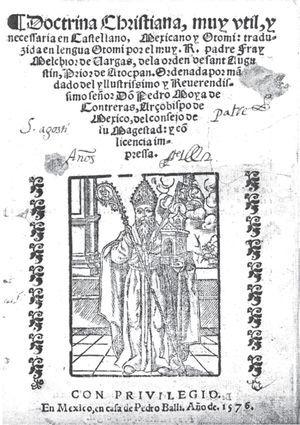 ¶Doctrina Christiana, muy vtil, y
necessaria en Castellano, Mexicano y Otomi: tradu-
zida en lengua Otomi por el muy. R. padre Fray
Melchior de Vargas, dela orden de sant Augu
stin, Prior de Atocpan. Ordenada por mã
dado del yllustrissimo y Reuerendis-
simo señor Dõ Pedro Moya de
Contreras, Arçobispo de
Mexico, del consejo de
su Magestad: y cõ
licencia im-
pressa.
S. agosti
Años
patre
CON PRIVILEGIO.
En Mexico, en casa de Pedro Balli. Año de. 1576.